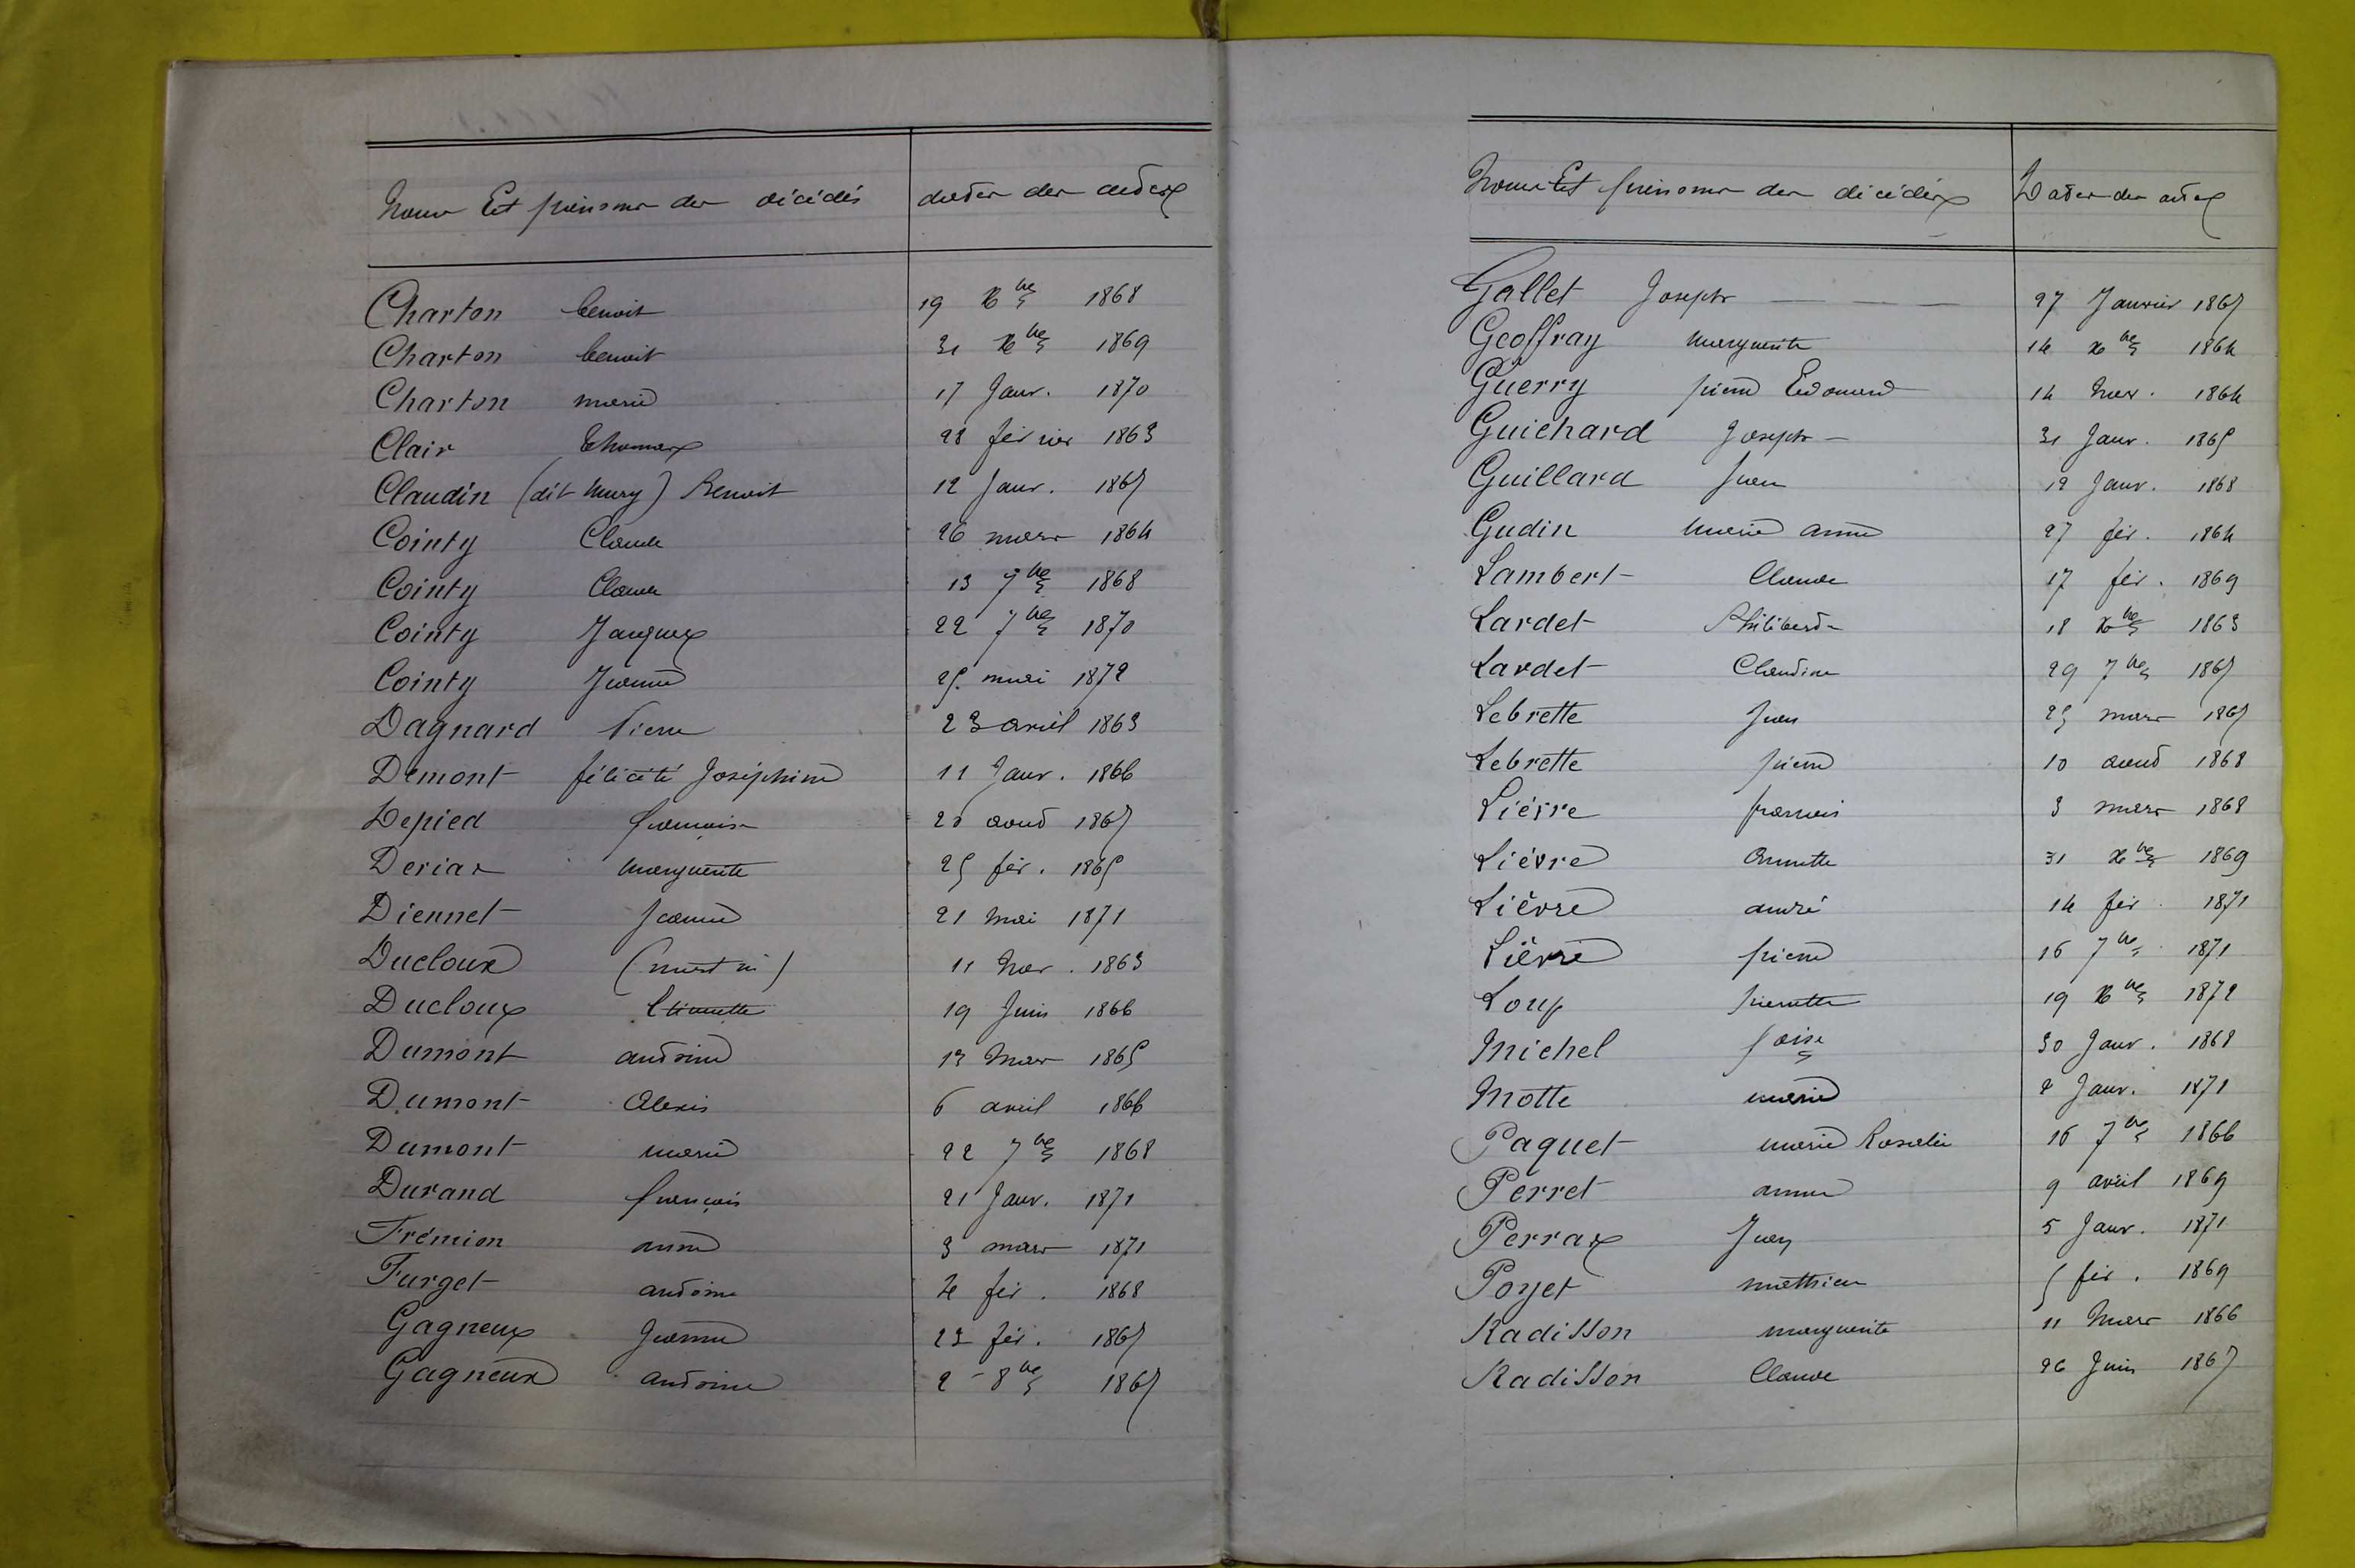 Noms Et prénoms des décédés dates des actes
Charton benoit 19 Xbre 1868
Charton benoit 31 Xbre 1869
Charton marie 17 Janv. 1870
Clair thomas 28 février 1863
Claudin (dit Mury) Benoit 12 Janv. 1867
Cointy Claude 26 mars 1864
Cointy Claude 13 7bre 1868
Cointy Jacques 22 7bre 1870
Cointy Jeanne 25 mai 1872
Dagnard Pierre 23 avril 1863
Démont félicité Joséphine 11 Janv. 1866
Depied françoise août 1867
Deriax marguerite 25 fév. 1865
Diennet Jeanne 21 mai 1871
Ducloux (mort né) 11 1863
Ducloux Etiennette 19 Juin 1866
Dumont antoine 13 Mars 1865
Dumont Alexis 6 avril 1866
Dumont marie 22 7bre 1868
Durand françois 21 Janv. 1871
Frémion anne 3 mars 1871
Furget antoine 4 fév. 1868
Gagneux Jeanne 23 fév. 1867
Gagneux antoine 2 8bre 1867
Noms Et prénoms des décédés Dates des actes
Gallet Joseph 27 Janvier 1867
Geoffray marguerite 14 Xbre 1864
Guerry pierre Edouard 14 1864
Guichard Joseph 31 Janv. 1865
Guillard Jean 12 Janv. 1868
Gudin marie anne 27 fév. 1864
Lambert Claude 17 fév. 1869
Lardet Philibert 18 Xbre 1863
Lardet Claudine 29 7bre 1867
Lebrette Jean 25 mars 1867
Lebrette pierre 10 août 1868
Lièvre françois 3 mars 1868
Lièvre Annette 31 Xbre 1869
Lièvre andré 14 fév. 1871
Lièvre pierre 16 7bre 1871
Loup pierrette 19 Xbre 1872
Michel foise 30 Janv. 1868
Motte marie 2 Janv. 1871
Paquet marie Rosalie 16 7bre 1866
Perret anne 9 avril 1869
Perrax Jean 5 Janv. 1871
Poyet mathieu 5 fév. 1869
Radisson marguerite 11 Mars 1866
Radisson Claude 26 Juin 1867